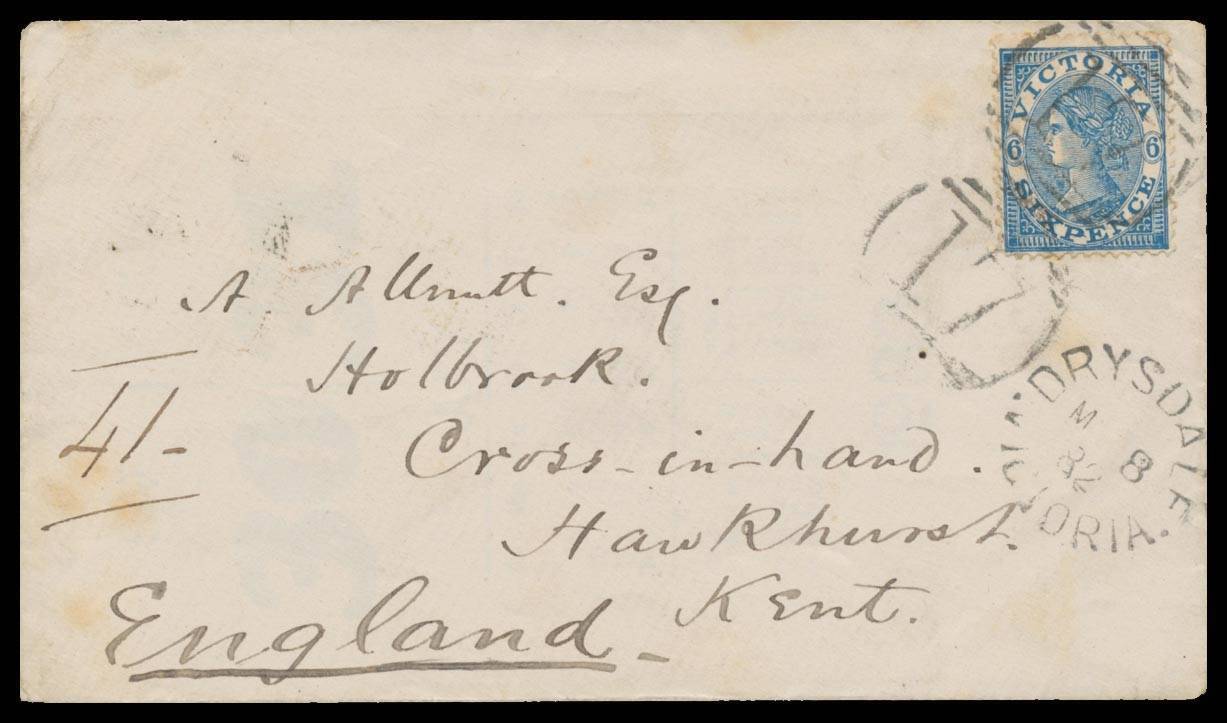 VICTORIA
6 6
SIXPENCE
A Allnutt. Esq.
Holbrook.
41-
Cross-in-hand.
Hawkhurst.
Kent.
England-
DRYSDALE
M 8
82
VICTORIA.